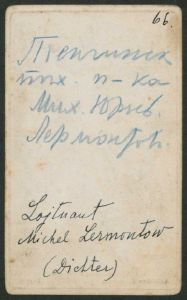 66.
Тенгинск
пѣх. п-ка
Мих. Юрьев.
Лермонтов.
Lojtnant
Michel Lermontow
(Dichter)